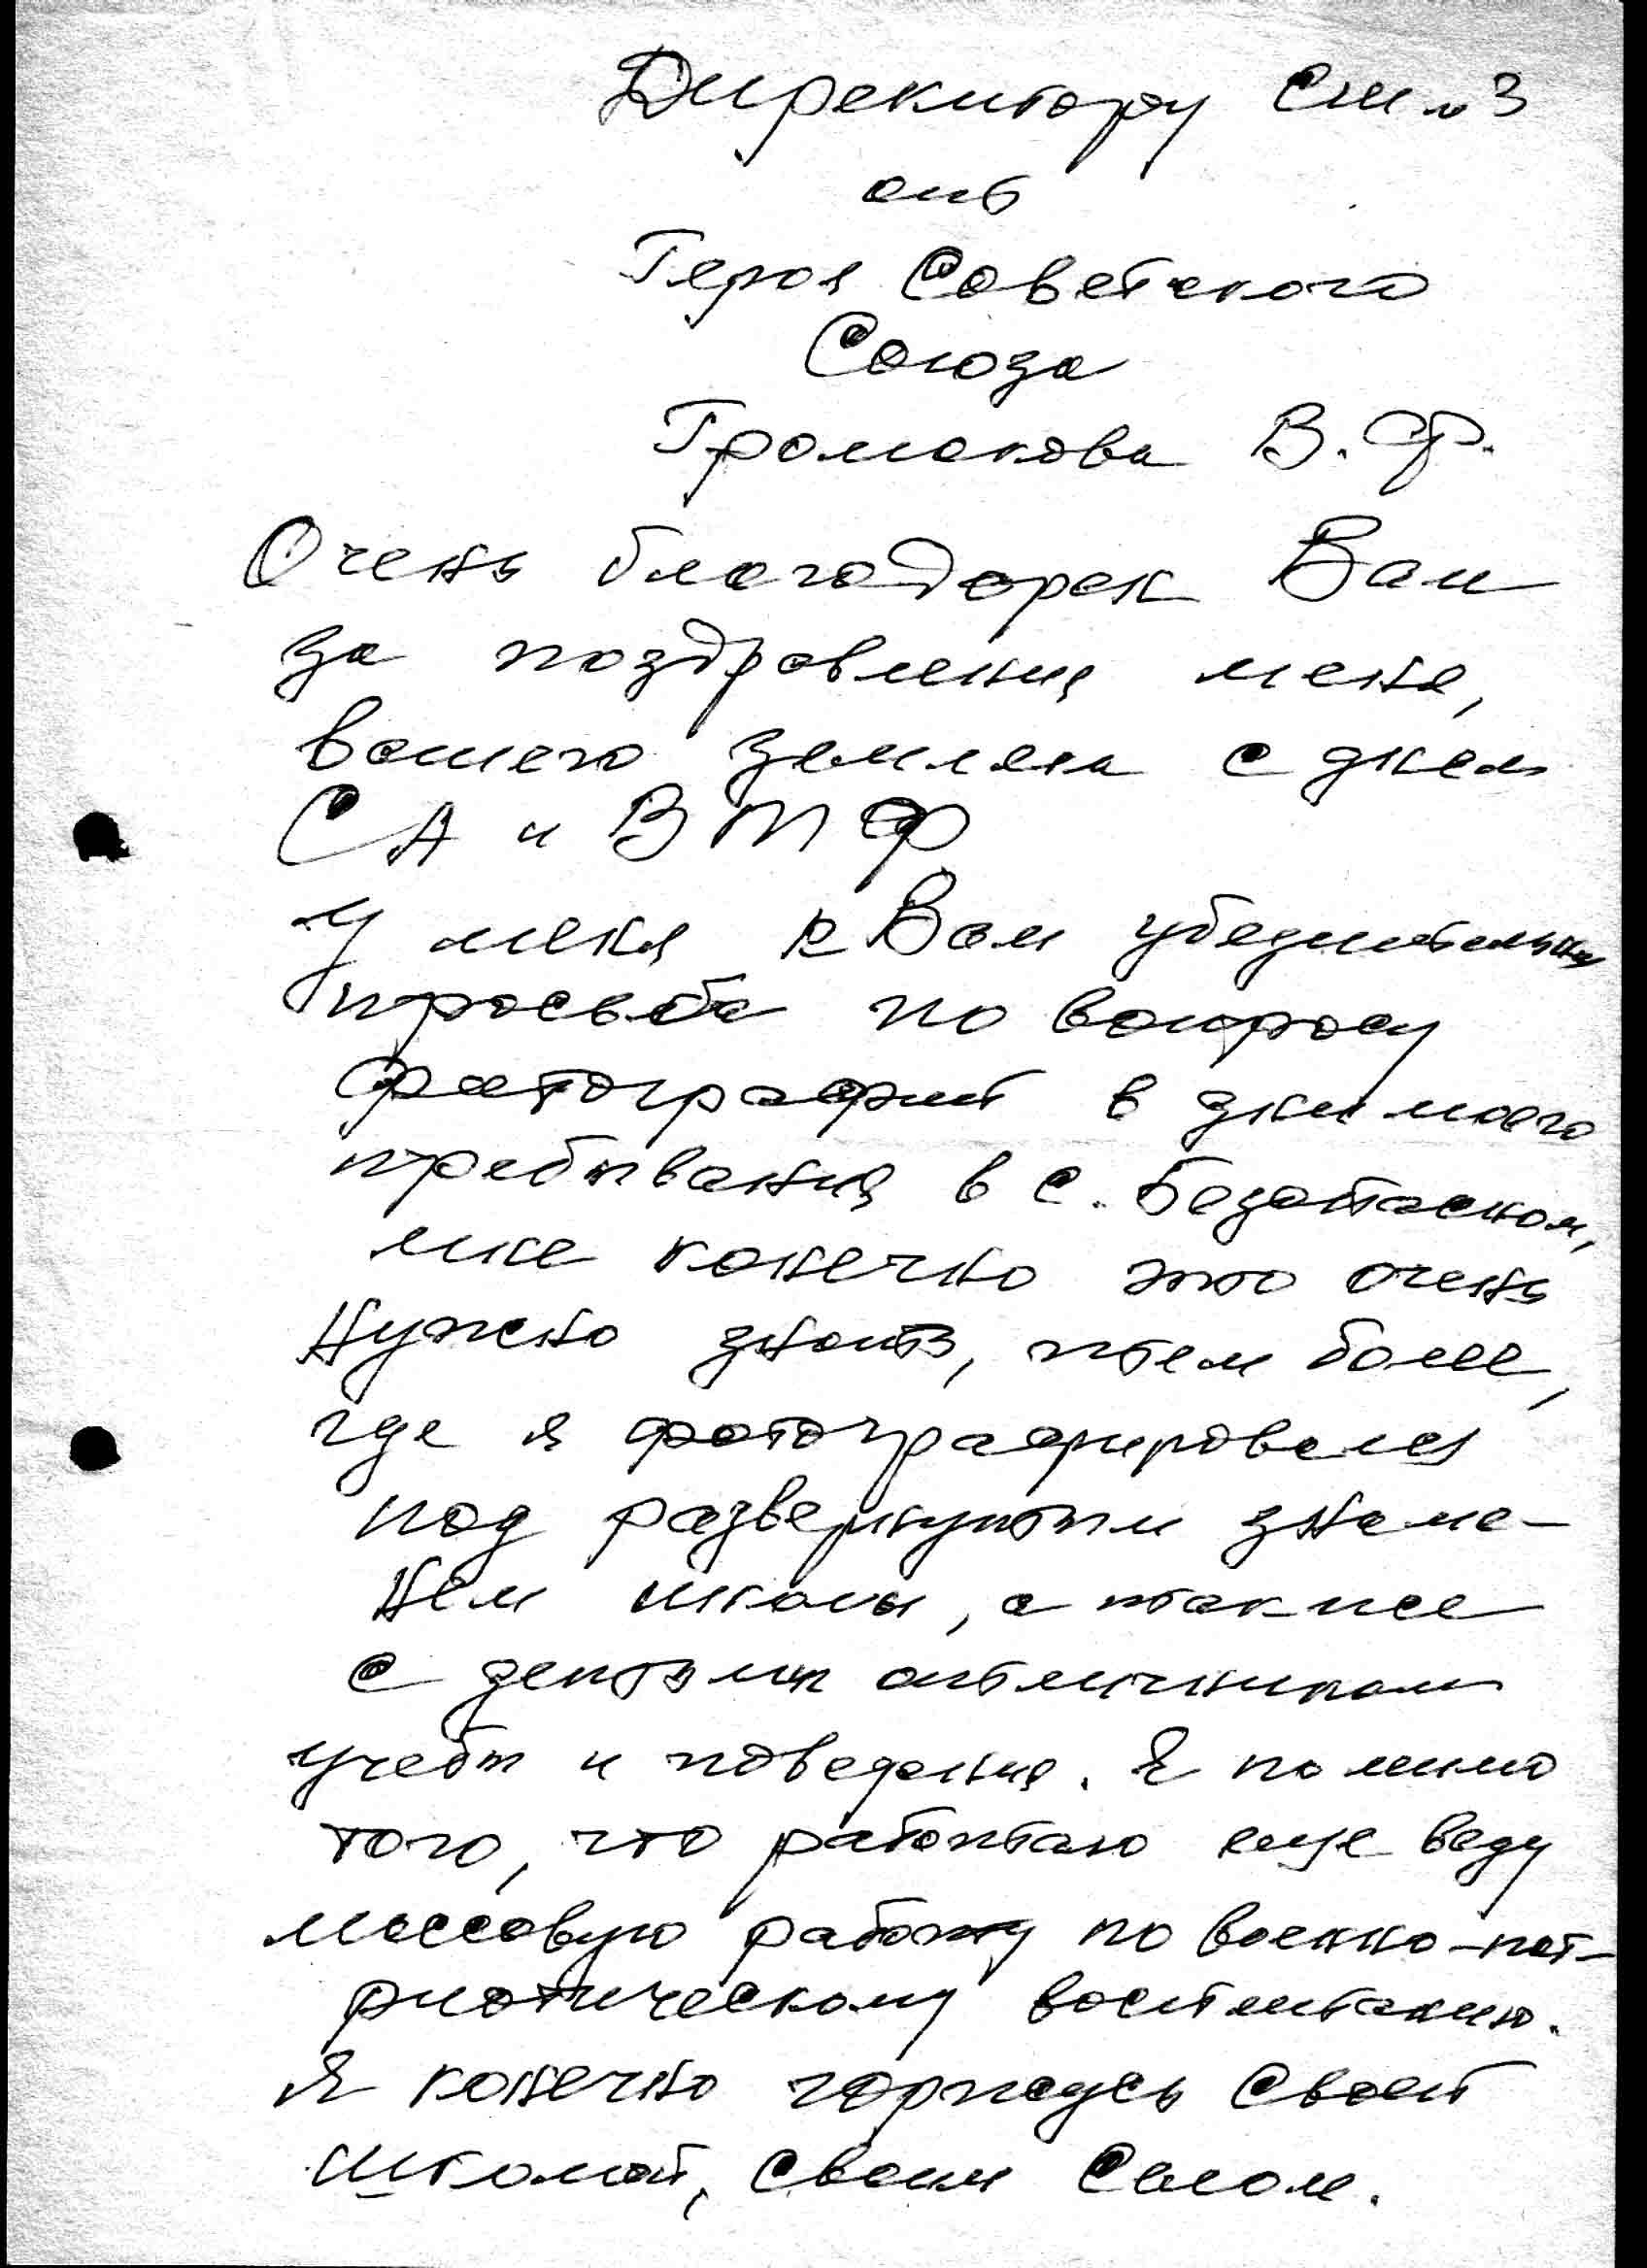 Директору СШ №3
от
Героя Советского
Союза
Громакова В. Ф.
Очень благодарен Вам
за поздравления меня,
вашего земляка с днем
СА и ВМФ
У меня к Вам убедительная
просьба по вопросу
фотографий в дни моего
пребывания в с. Безопасном,
мне конечно это очень
нужно знать, тем более,
где я фотографировался
под развернутым знаме-
нем школы, а также
с детьми отличниками
учебы и поведения. Я помимо
того, что работаю еще веду
массовую работу по военно-пат-
риотическому воспитанию.
Я конечно горжусь своей
школой, своим селом.